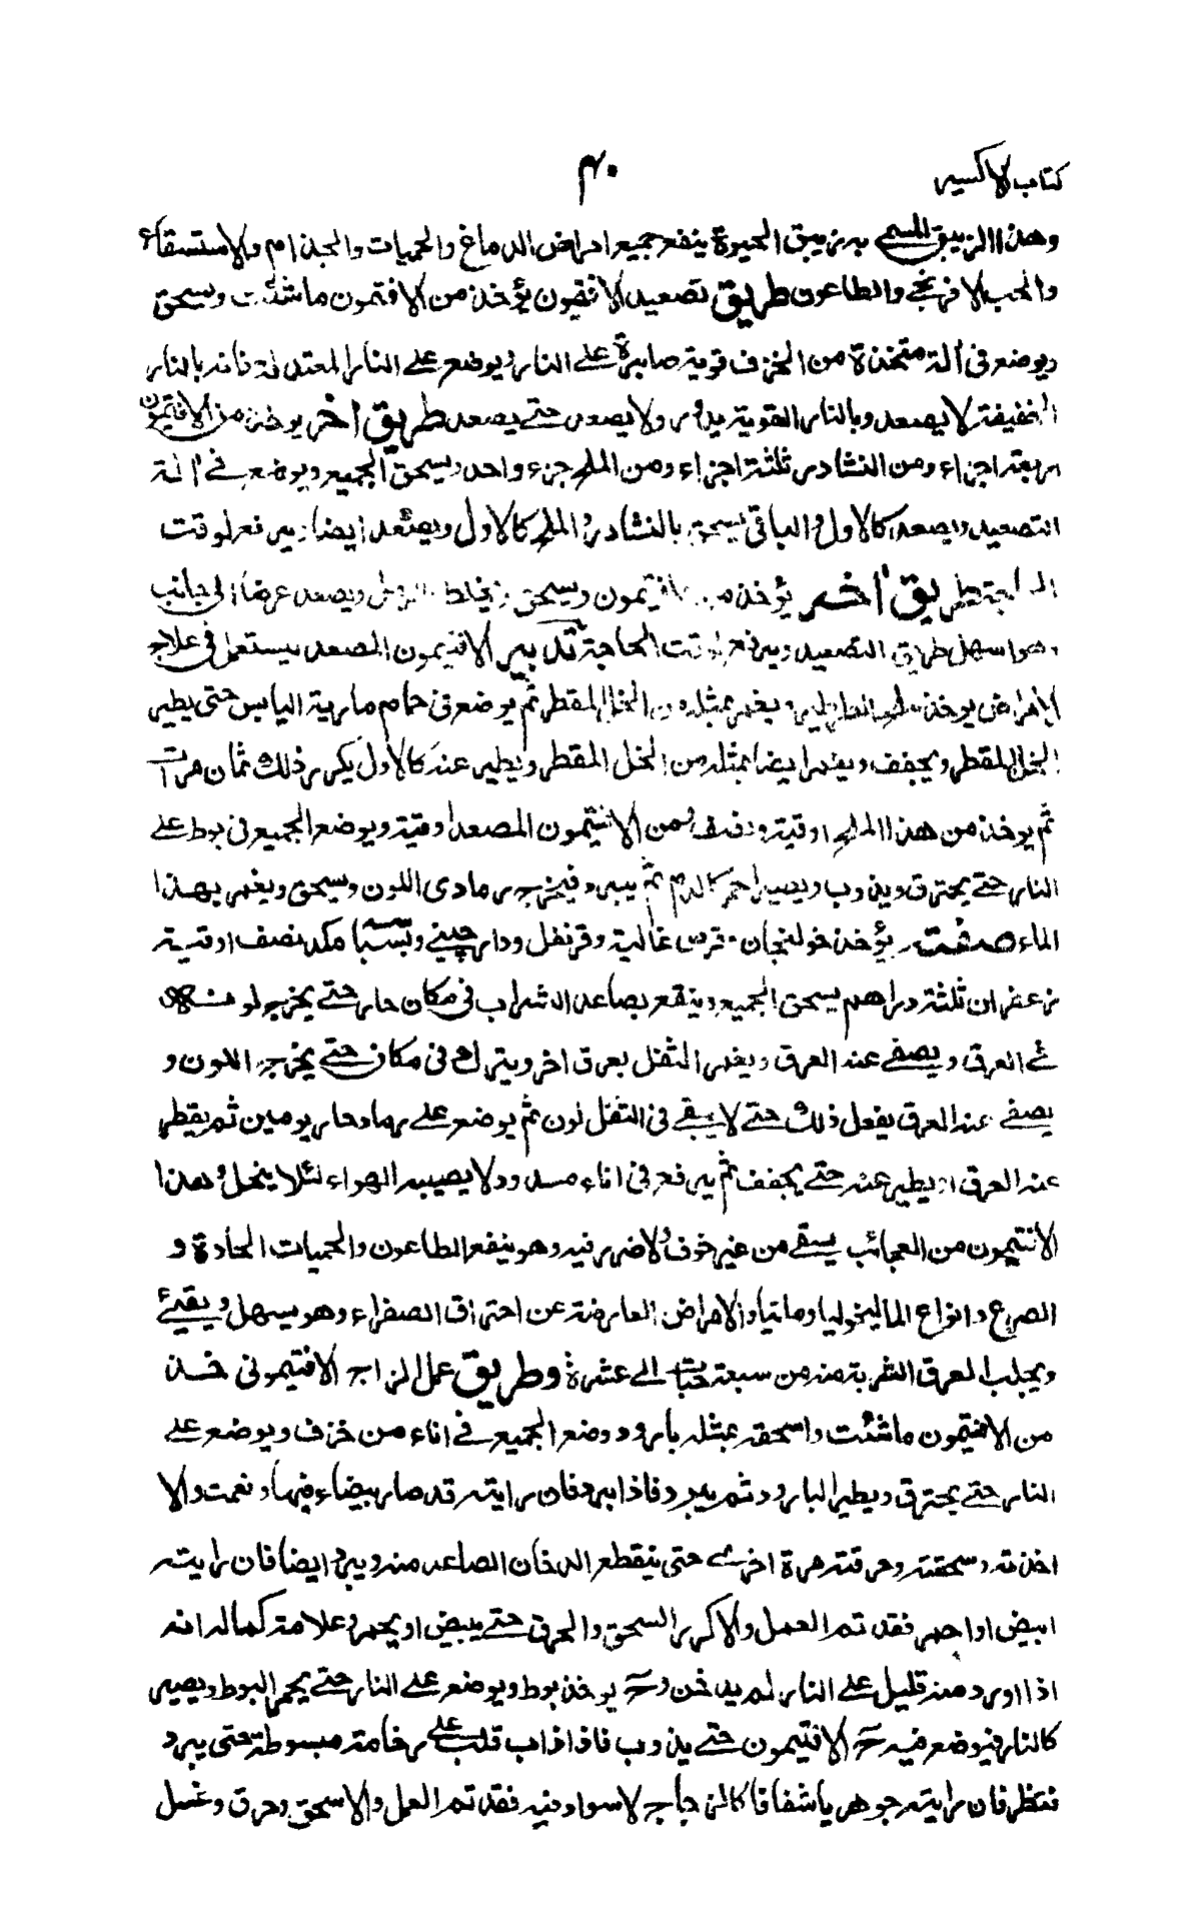 كتاب الاكسير
۴۰
وهذا الزيبق المسمى به زيبق الحيوة ينفع جميع امراض الدماغ والحميات والجذام والاستسقاء
والحب الافرنجي والطاعون طريق تصعيد الانتيمون يؤخذ من الافتمون ما شئت ويسحق
ويوضع في آلة متخذة من الخزف قوية صابرة على النار ويوضع على النار المعتدلة فانه بالنار
الخفيفة لا يصعد وبالنار القوية يدور ولا يصعد حتى يصعد طريق اخر يوخذ من الافتيمون
اربعة اجزاء ومن النشادر ثلثة اجزاء ومن الملح جزء واحد ويسحق الجميع ويوضع في آلة
التصعيد ويصعد كالاول والباقي يسحق بالنشادر والملح كالاول ويصعد ايضا ويرفع لوقت
الحاجة طريق آخر يؤخذ من افتيمون ويسحق ويخلط ويصعد عرضا الى جانب
وهو اسهل طرق التصعيد ويرفع لوقت الحاجة تدبير الافتيمون المصعد يستعمل في علاج
الامراض يوخذ ملح الطرطير ويغمر بمثله من الخل المقطر ثم يوضع في حمام مارية اليابس حتى يطير
الخل المقطر ويجفف ويغمر ايضا بمثله من الخل المقطر ويطير عنه كالاول يكرر ذلك ثمان مرات
ثم يوخذ من هذا الملح اوقية ونصف ومن الانتيمون المصعد اوقية ويوضع الجميع في بوط على
النار حتى يحترق ويذوب ويصير احمر كالدم ثم يبرد فيخرج رمادى اللون ويسحق ويغمر بهذا
الماء صفته يؤخذ خولنجان قرص غالية وقرنفل ودارچيني وبسباسة مكد نصف اوقية
زعفران ثلثة دراهم يسحق الجميع وينقع بصاعد الشراب في مكان حار حتى يخرج لونه
في العرق ويصفى عنه العرق ويغمر الثفل بعرق اخر ويترك في مكان حتى يخرج اللون و
يصفى عنه العرق يفعل ذلك حتى لا يبقى في الثفل لون ثم يوضع على رماد حار يومين ثم يقطر
عنه العرق او يطير عنه حتى يجفف ثم يرفع في اناء مسدود لا يصيبه الهواء لئلا ينحل وهذا
الانتيمون من العجائب يسقى من غير خوف ولا ضرر فيه وهو ينفع الطاعون والحميات الحادة و
الصرع وانواع الماليخوليا ومانيا والامراض العارضة عن احتراق الصفراء وهو يسهل ويقيئ
ويجلب العرق الشربة منه من سبعة حبات الى عشرة وطريق عمل الزاج الافتيموني خذ
من الافتيمون ما شئت واسحقه بمثله بارود وضع الجميع في اناء من خزف ويوضع على
النار حتى يحترق ويطير البارود ثم يبرد فاذا برد فان رايته قد صار بيضاء فبها ونعمت والا
اخذته وسحقته وحرقته مرة اخرى حتى ينقطع الدخان الصاعد منه ويبرد ايضا فان رايته
ابيض او احمر فقد تم العمل والا كرر السحق والحرق حتى يبيض او يحمر وعلامة كماله انه
اذا اورد منه قليل على النار لم يدخن وح يوخذ بوط ويوضع على النار حتى يحمر البوط ويصير
كالنار فيوضع فيه ح الافتيمون حتى يذوب فاذا ذاب قلب على رخامة مبسوطة حتى يبرد
فتنظر فان رايته جوهريا شفافا كالزجاج لا سواد فيه فقد تم العمل والا سحق وحرق وغسل